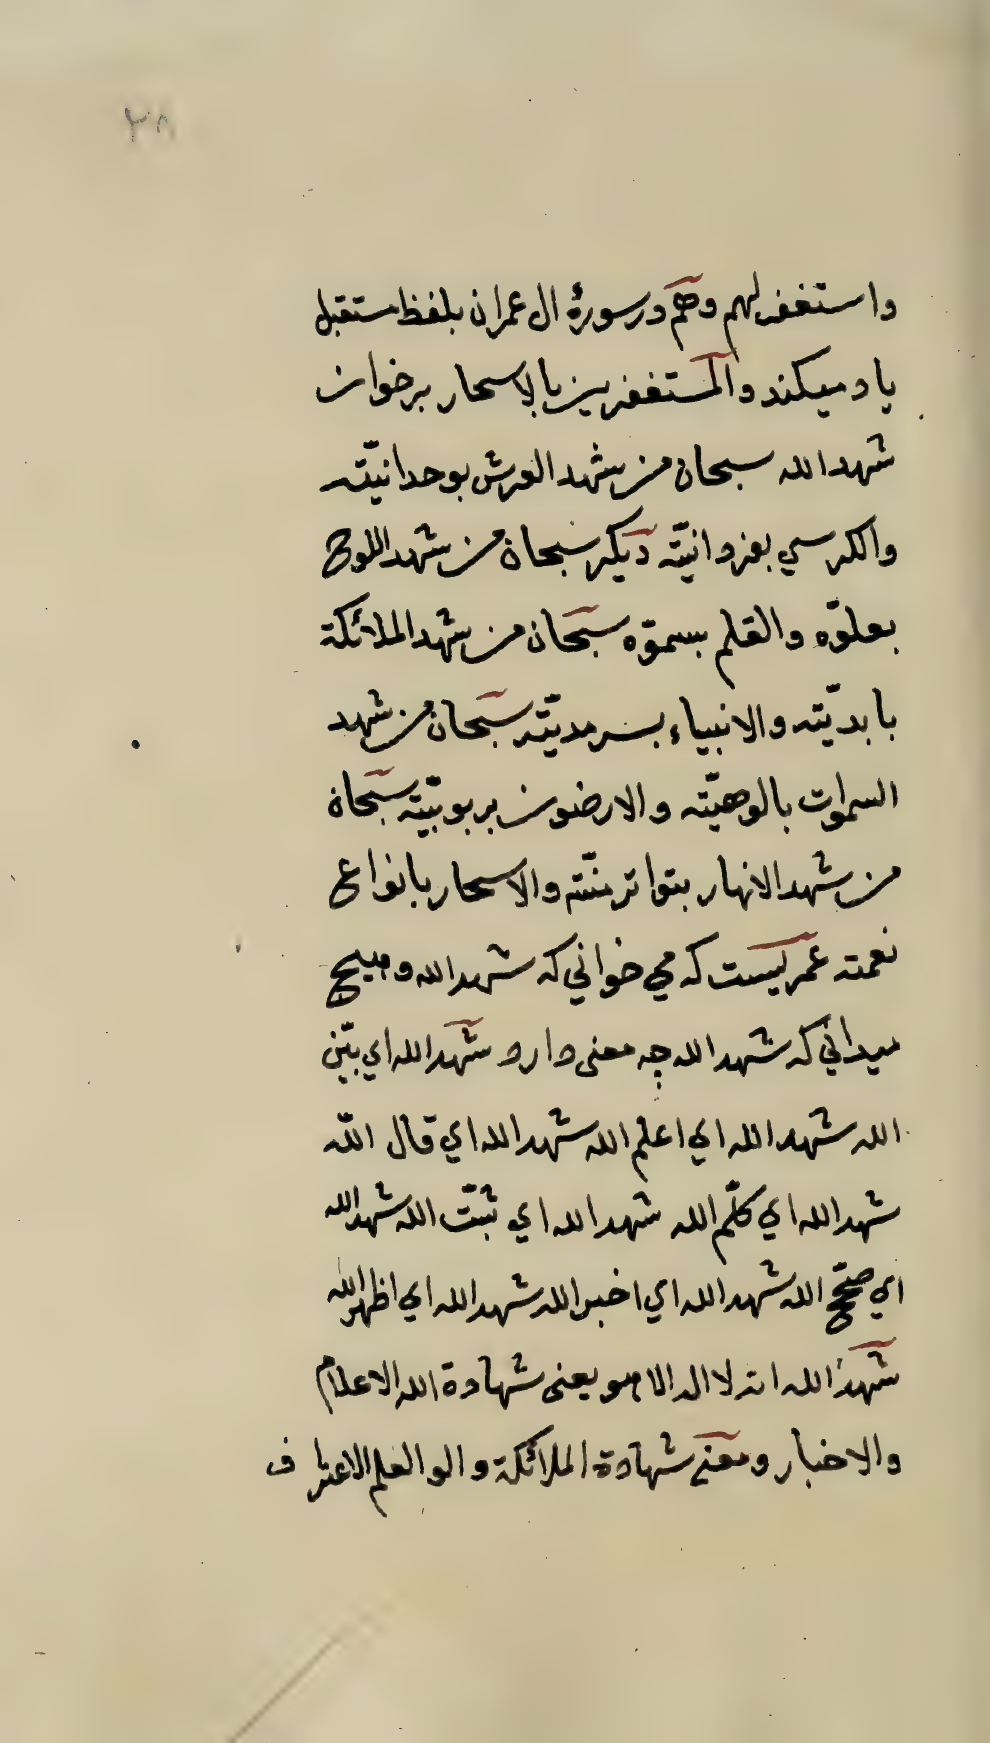 ٢٨
واستغفر لهم وهم در سورۀ ال عمران بلفظ مستقبل
ياد ميكند والمستغفرين بالاسحار برخوان
شهد الله سبحان من شهد العرش بوحدانيّته
والكرسي بفردانيّته ديكر سبحان من شهد اللوح
بعلوّه والقلم بسموّه سبحان من شهد الملائكة
بابديّته والانبياء بسرمديّته سبحان من شهد
السموات بالوهيّته والارضون بربوبيّته سبحان
من شهد الانهار بتواتر منّته والاسحار بانواع
نعمته عمريست كه مي خواني كه شهد الله وهيچ
ميداني كه شهد الله چه معنى دارد شهد الله اي بيّن
الله شهد الله اي اعلم الله شهد الله اي قال الله
شهد الله اي كلّم الله شهد الله اي ثبّت الله شهد الله
اي صحّح الله شهد الله اي اخبر الله شهد الله اي اظهر الله
شهد الله انه لا اله الا هو يعنى شهادة الله الاعلام
والاخبار ومعنى شهادة الملائكة والوا العلم الاعتراف